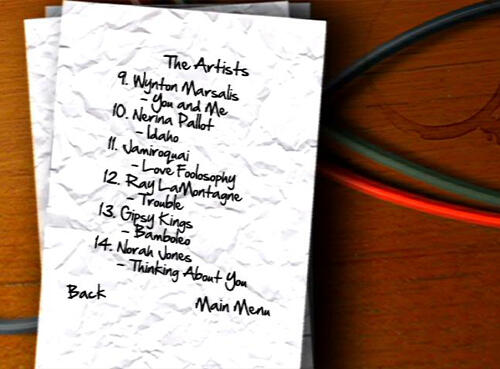 The Artists
9. Wynton Marsalis
- You and Me
10. Nerina Pallot
- Idaho
11. Jamiroquai
- Love Foolosophy
12. Ray LaMontagne
- Trouble
13. Gipsy Kings
- Bamboleo
14. Norah Jones
- Thinking About You
Back
Main Menu